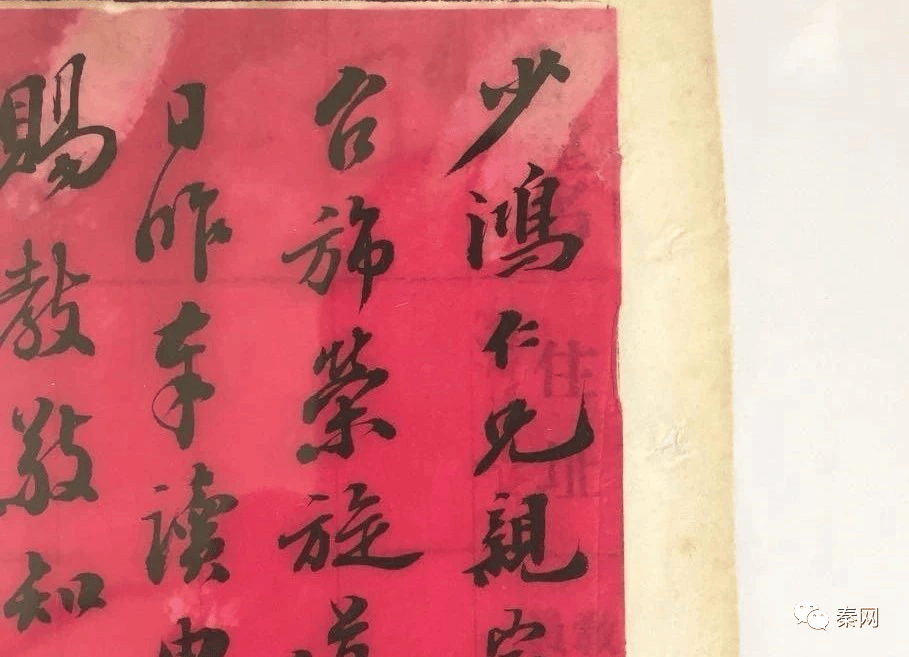 少鴻仁兄親家
台旆榮旋
日昨奉讀
賜教敬知
住址
秦网